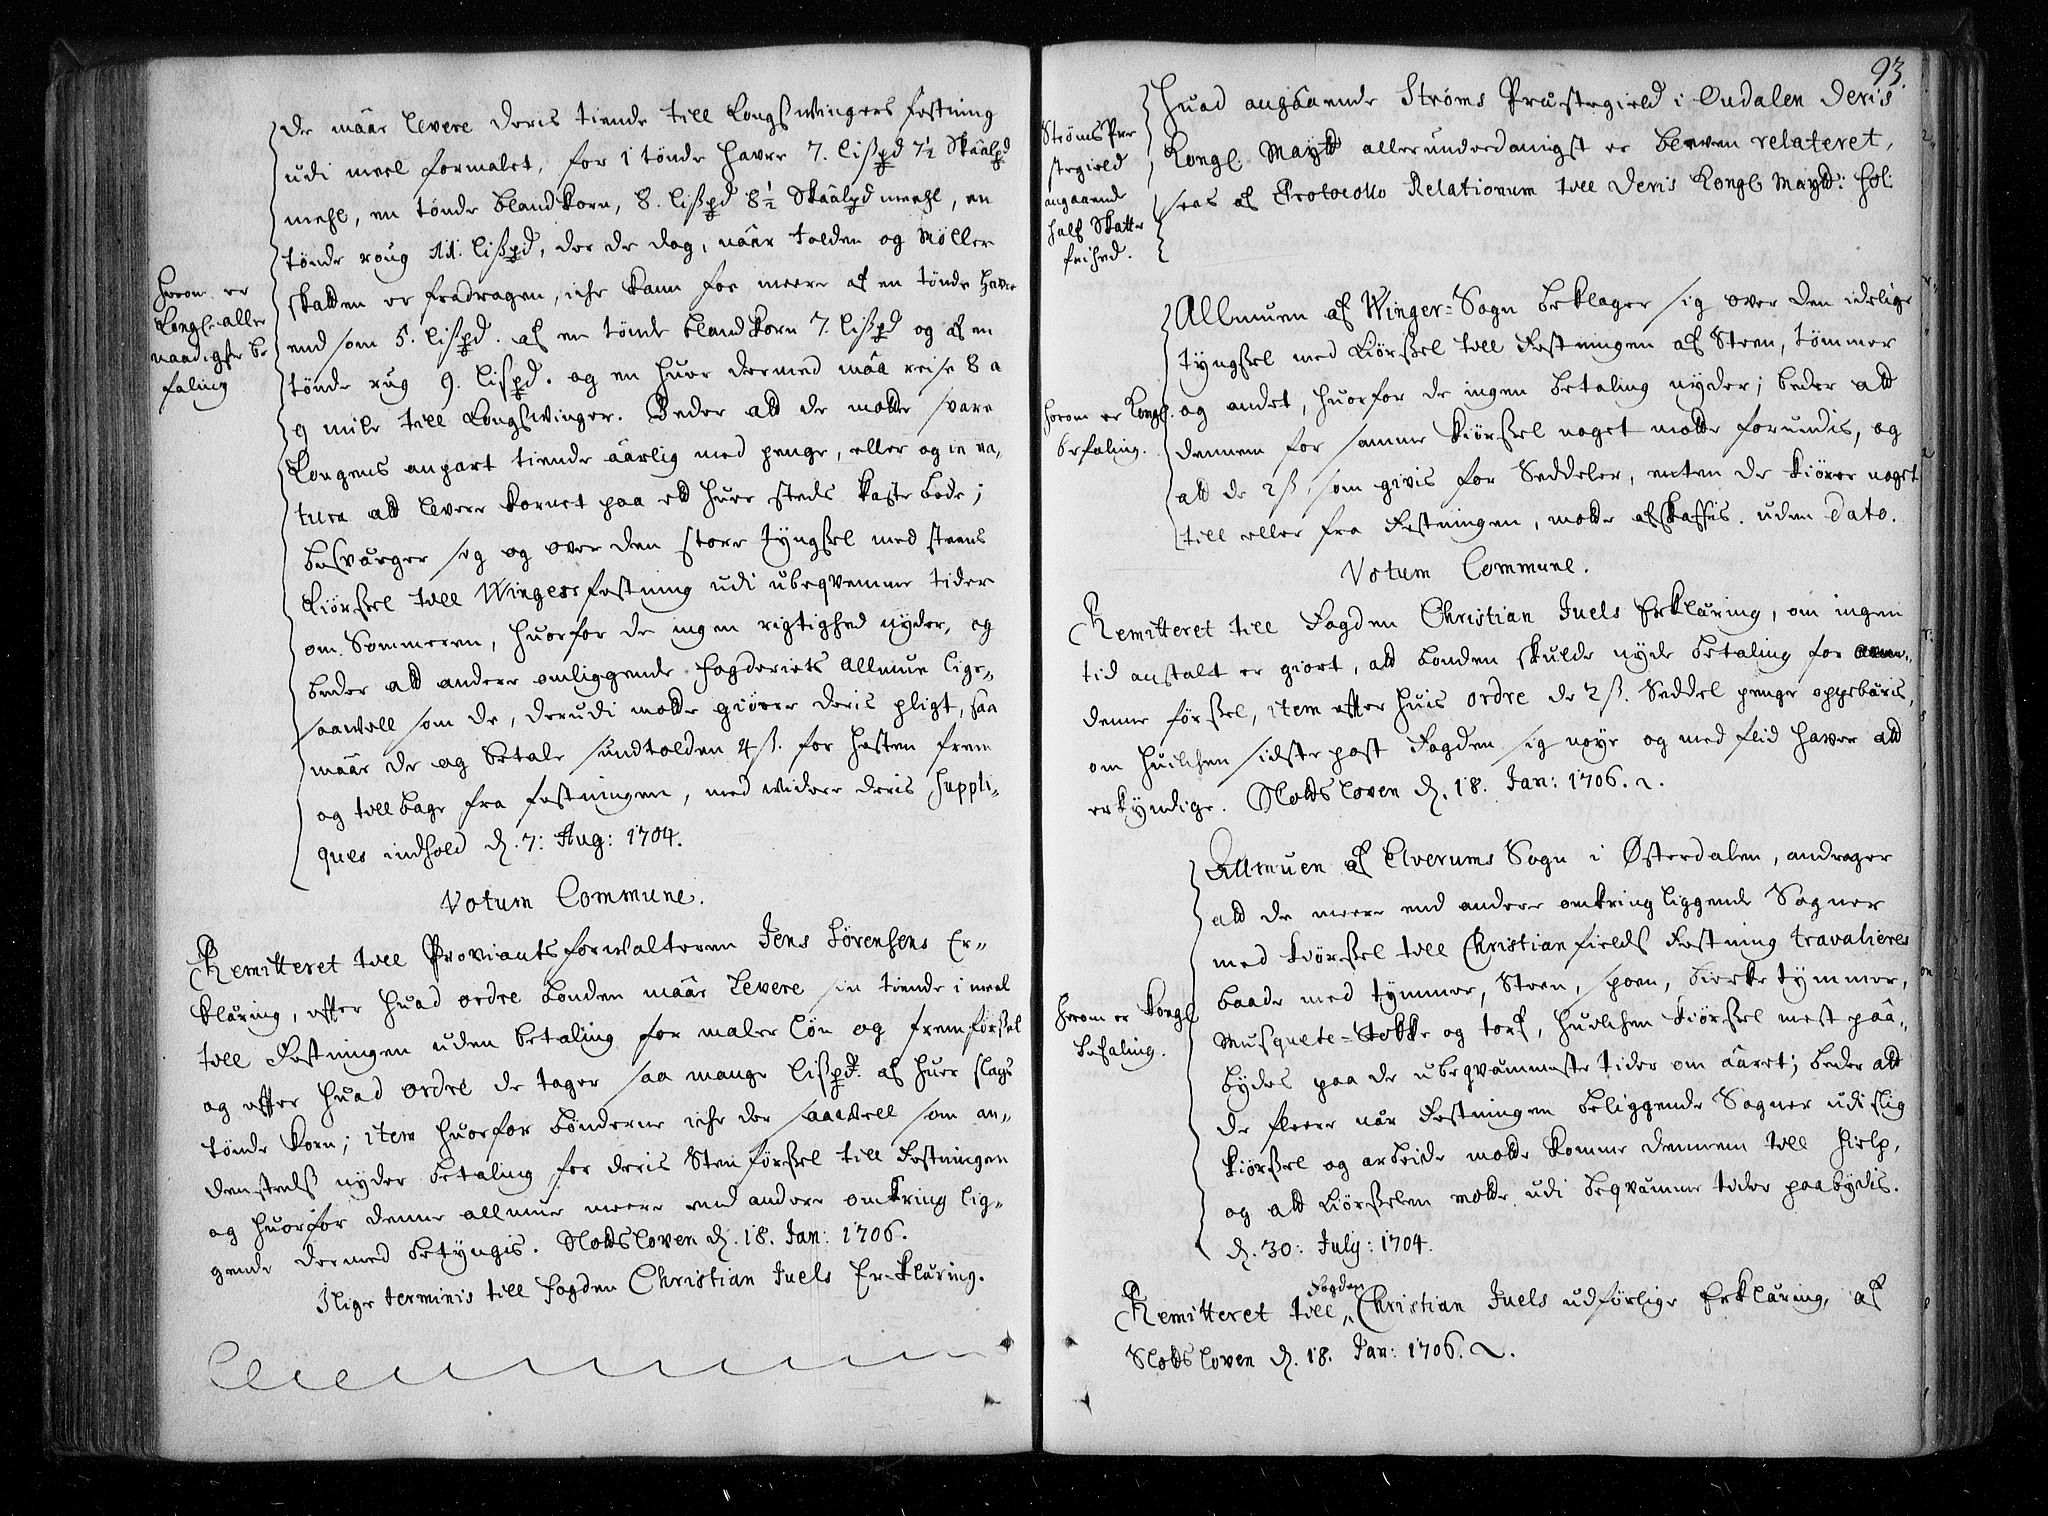 De maar levere deris tiende till Kongswingers fæstning
udi meel formalet, for 1 tønde havre 7. lispd 7½ Skaalpd
mehl, en tønde blandkorn, 8. lispd 8½ Skaalpd meehl, en
tønde roug 11. lispd, der de dog, naar tolden og Møller
skatten er fradragen, iche kann faae meere af en tønde havre
end som 5. lispd. af en tønde blandkorn 7. lispd og af en
tønde rug 9. lispd. og en huer dermed maa reise 8 a
9 mile till Kongswinger. Beder att de motte svare
Kongens anpart tiende aarlig med penge, eller og in na,
tura att levere kornet paa ett huer steds kaste bode;
besværger sig og over den store tyngsel med steens
kiørssel till Wingers fæstning udi ubeqvemme tider
om Sommeren, huorfor de ingen rigtighed nyder, og
beder att andere omliggende fogderiets Allmue lige-
saavell som de, derudi motte giøre deris pligt, saa
maar de og betale sundtolden 4 ß. for hæsten frem
og till bage fra fæstningen, med widere deris Suppli-
ques indhold d. 7: Aug: 1704.
Herom er
Kongl. aller
naadigste be
faling
Votum Commune.
Remitteret till Proviantsforwalteren Jens Sørensens Er-
klæring, efter huad ordre bonden maar levere sin tiende i meel
till Fæstningen uden betaling for maler løn og fremførssel
og efter huad ordre de tager saa mange lispd. af huer slags
tønde korn; item huorfor bønderne iche der saavell som an-
denstedß nyder betaling for deris Sten førssel till Fæstningen
og huorfor denne allmue meere end andere omkring lig-
gende dermed betyngis. Slotsloven d. 18. Jan: 1706.
Jlige terminis till fogden Christian Juels Er-klæring.
93.
Huad angaaende Strøms Præstegield i Oudalen Deris
Kongl. Maytt allerunderdanigst er bleven relateret,
sees af Protocollo Relationum till Deris Kongl Maytt: fol:
Strøms Præ
stegield
angaaende
half Skatte
frihed.
Allmuen af Winger-Sogn beklager sig over den idelige
tyngssel med kiørssel till Fæstningen af Steen, tømmer
og andet, huorfor de ingen betaling nyder; beder att
dennem for samme kiørssel noget motte forundis, og
att de 2 ß, som givis for Seddeler, enten de kiører noget
till eller fra Fæstningen, motte afskaffis. uden Dato.
Herom er Kongl.
befaling.
Votum Commune.
Remitteret till Fogden Christian Juels Erklæring, om ingen
tid anstalt er giort, att bonden skulde nyde betaling for
denne førssel, item efter huis ordre de 2 ß. Seddel penge oppebæris,
om huilchen sidste post Fogden sig nøye og med flid haver att
erkyndige. Slotsloven d. 18. Jan: 1706.
Allmuen af Elverums Sogn i Østerdalen, andrager
att de meere end andere omkring liggende Sogner
med kiørssel till Christianfields Fæstning travalieres
baade med tymmer, Steen, spoen, birke tymmer,
Musquete-Stokke og torf, huilchen kiørssel mest paa-
bydes paa de ubeqvæmmeste tider om aaret; beder att
de fleere nær Fæstningen beliggende Sogner udi slig
kiørssel og arbeide motte komme dennem till hielp,
og att kiørsselen motte udi beqvæmme tider paabydis.
d. 30: July: 1704.
Herom er Kongl
befaling.
Remitteret till Fogden Christian Juels udførlige Erklæring, af
Slotsloven d. 18. Jan: 1706.